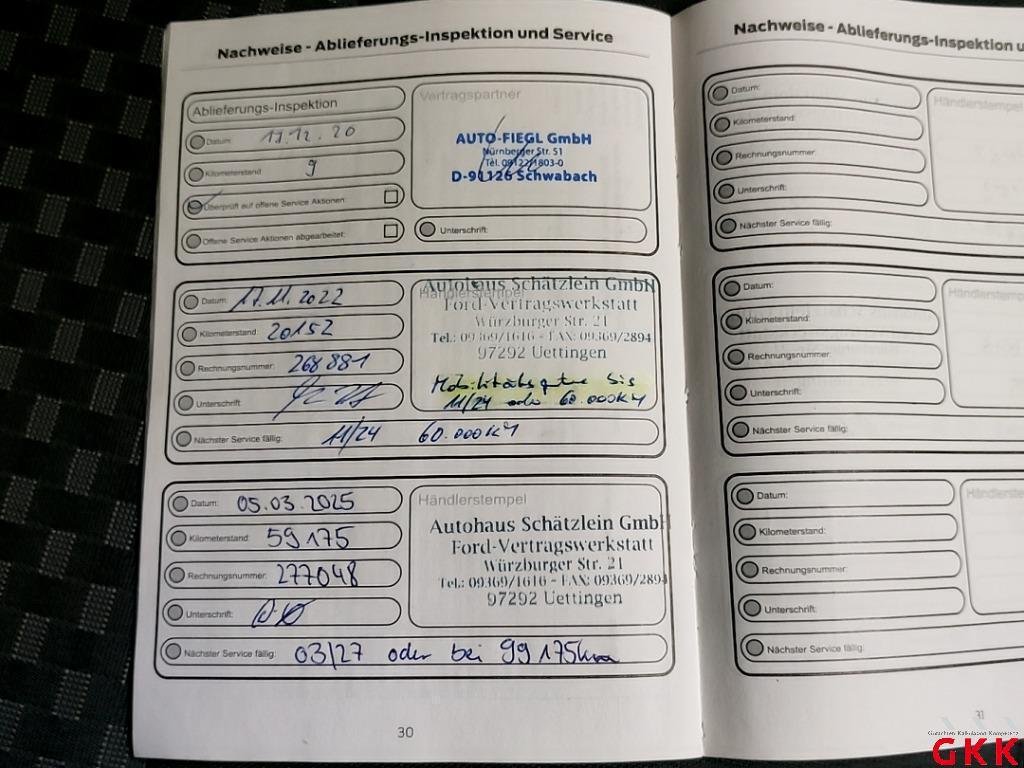 Nachweise - Ablieferungs-Inspektion und Service
Ablieferungs-Inspektion
Datum: 17.12.20
Kilometerstand: 9
Überprüft auf offene Service Aktionen:
Offene Service Aktionen abgearbeitet:
Vertragspartner
AUTO-FIEGL GmbH
Nürnberger Str. 51
Tel. 09122/1803-0
D-91126 Schwabach
Unterschrift:
Datum: 17.11.2022
Kilometerstand: 20152
Rechnungsnummer: 268881
Unterschrift:
Händlerstempel
Autohaus Schätzlein GmbH
Ford-Vertragswerkstatt
Würzburger Str. 21
Tel.: 09369/1616 - FAX: 09369/2894
97292 Uettingen
Mobilitätsgarantie bis
11/24 oder 60.000KM
Nächster Service fällig: 11/24 60.000KM
Datum: 05.03.2025
Kilometerstand: 59175
Rechnungsnummer: 277048
Unterschrift:
Händlerstempel
Autohaus Schätzlein GmbH
Ford-Vertragswerkstatt
Würzburger Str. 21
Tel.: 09369/1616 - FAX: 09369/2894
97292 Uettingen
Nächster Service fällig: 03/27 oder bei 99175km
30
Nachweise - Ablieferungs-Inspektion u
Datum:
Kilometerstand:
Rechnungsnummer:
Unterschrift:
Nächster Service fällig:
Händlerstempel
Datum:
Kilometerstand:
Rechnungsnummer:
Unterschrift:
Nächster Service fällig:
Händlerstempe
Datum:
Kilometerstand:
Rechnungsnummer:
Unterschrift:
Nächster Service fällig:
Händlerste
31
Gutachten Kalkulation Kompetenz
GKK